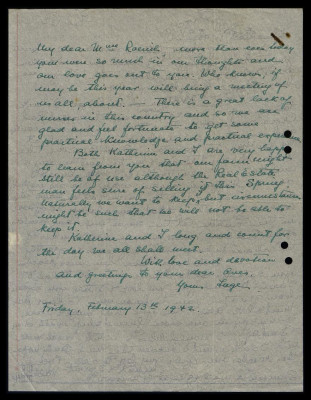 My dear Mrs Roerich more than ever today
you were so much in our thoughts and
our love goes out to you. Who knows, if
may be this year will bring a meeting of
us all about. — There is a great lack of
nurses in this country and so we are
glad and feel fortunate to get some
practical knowledge and practical experience
Both Katherine and I are very happy
to learn from you that our farm might
still be of use although the Real Estate
man feels sure of selling it this Spring.
Naturally we want to keep, but circumstances
might be such that we will not be able to
keep it.
Katherine and I long and count for
the day we all shall meet.
With love and devotion
and greetings to your dear ones
Yours Inge.
Friday, February 13th 1942.